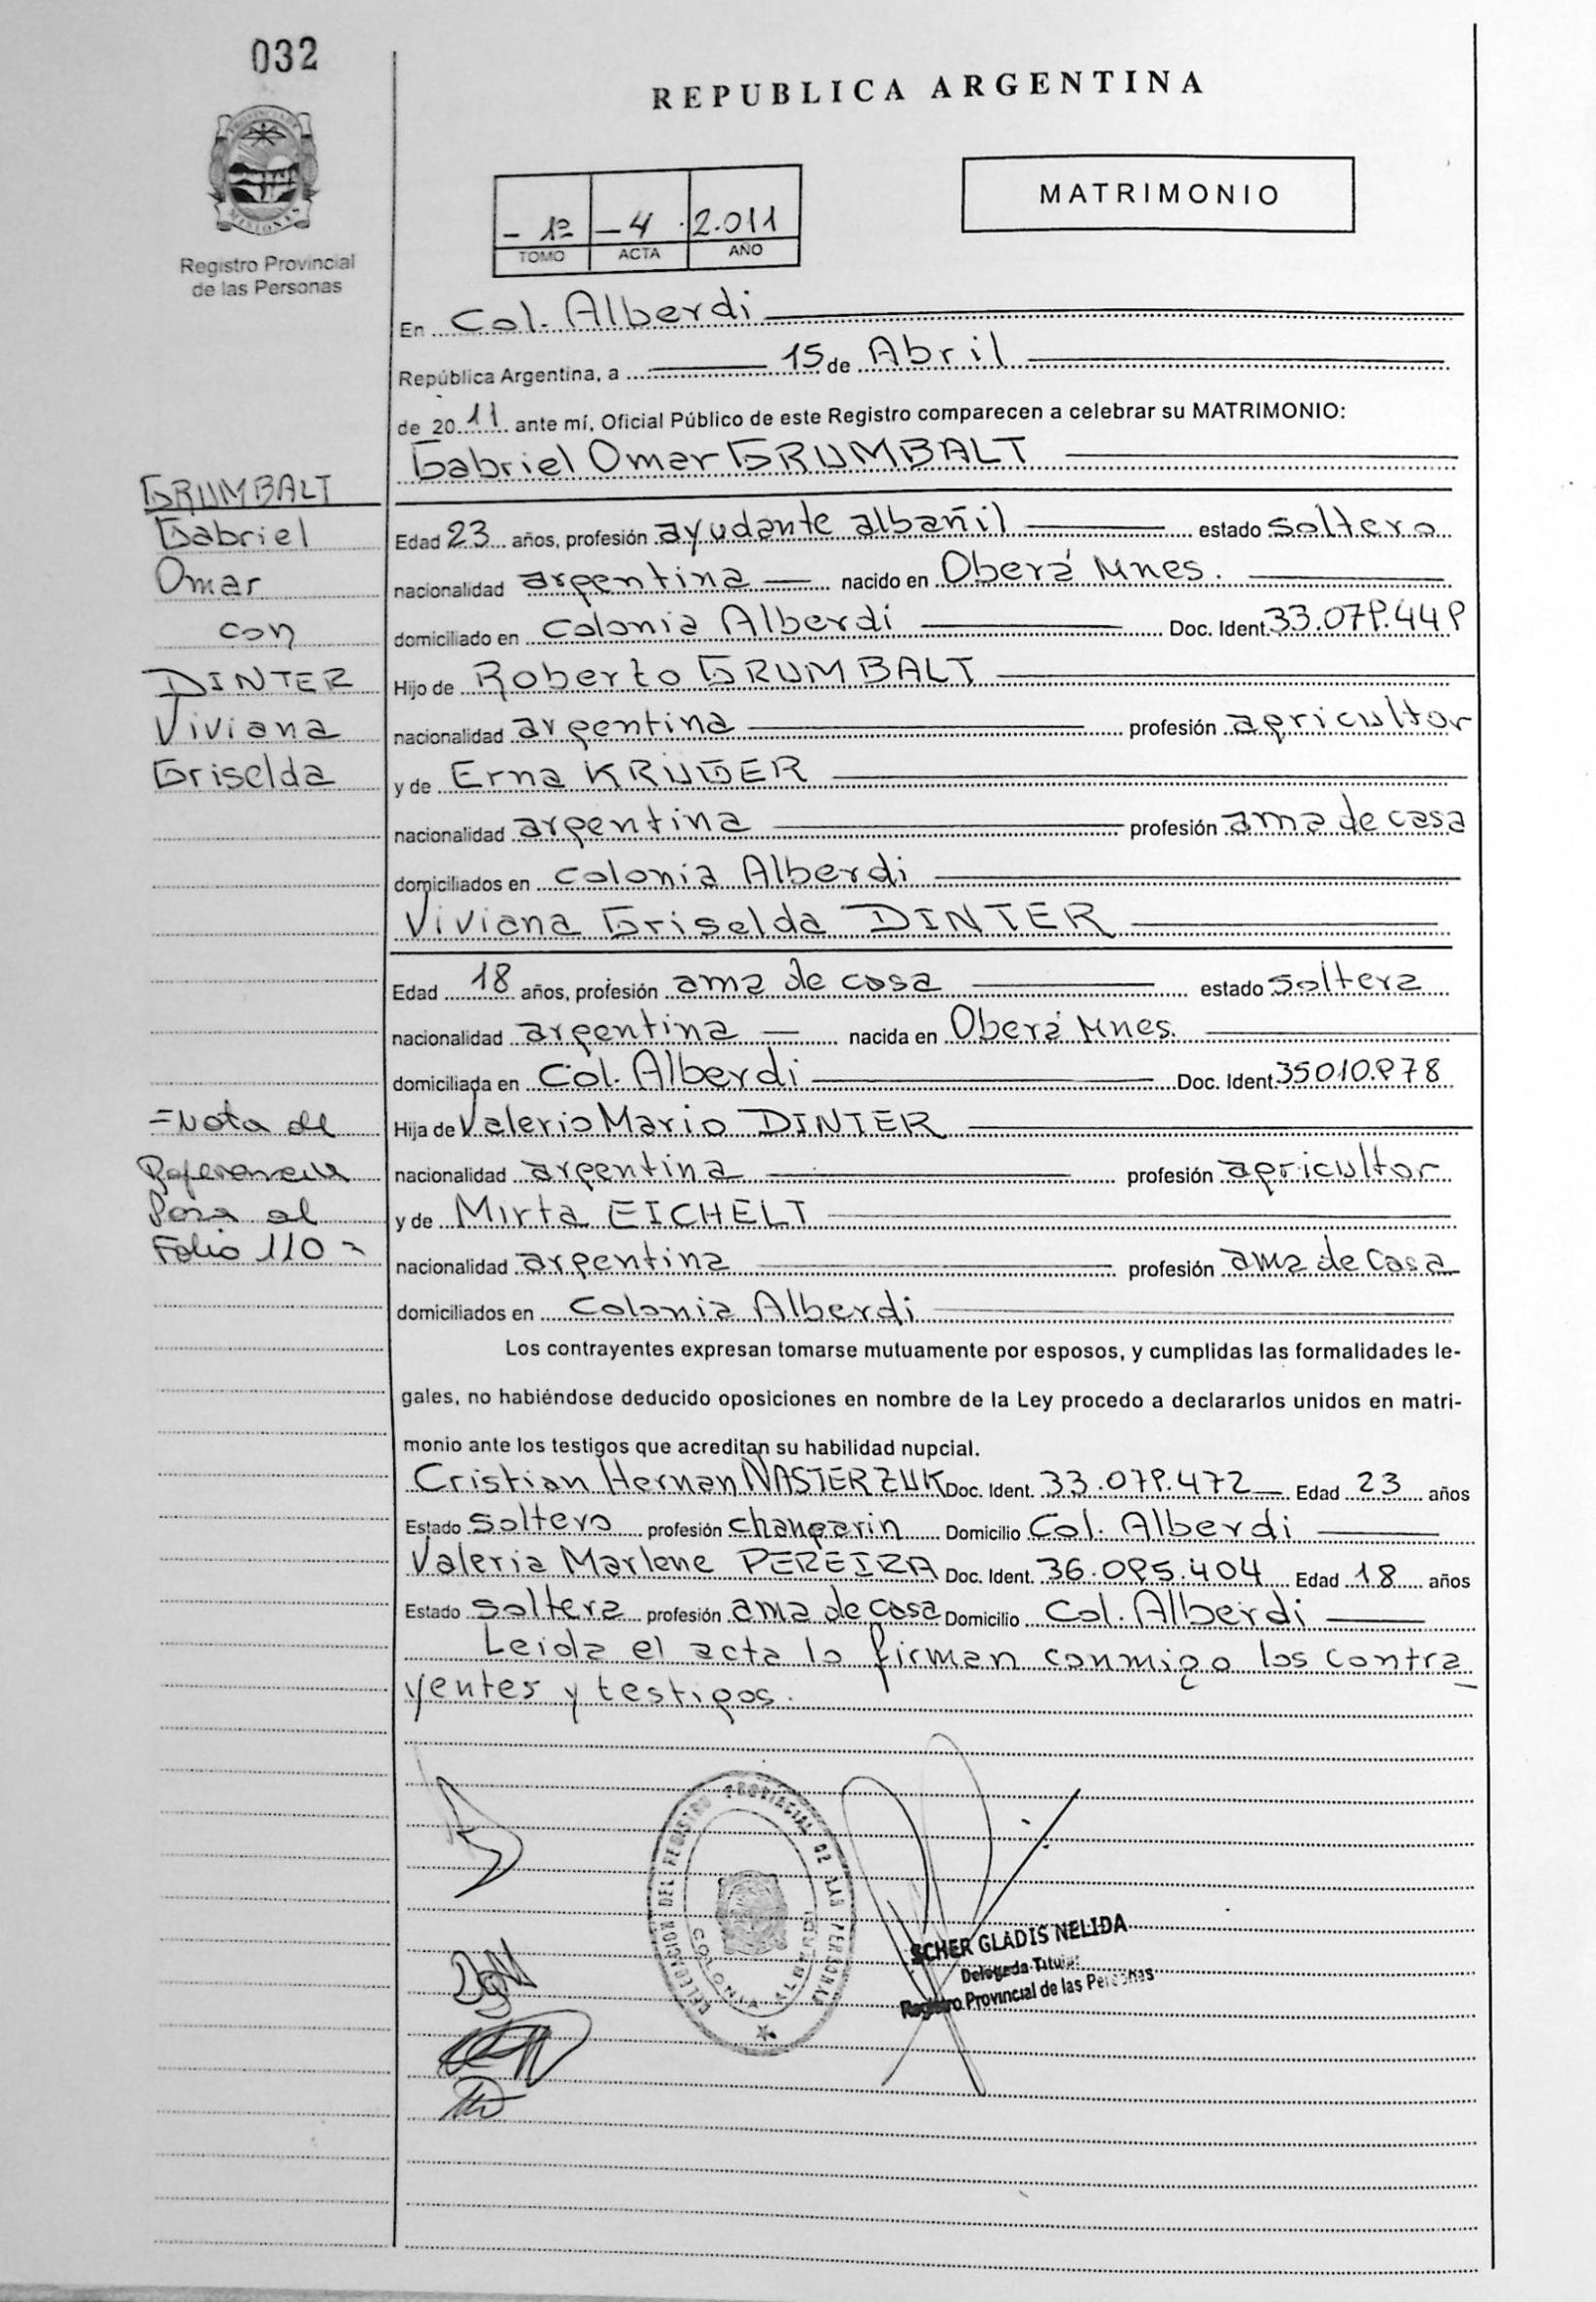 032
REPUBLICA ARGENTINA
MATRIMONIO
PROVINCIA DE
MISIONES
Registro Provincial
de las Personas
- 1º - 4 . 2.011
TOMO ACTA AÑO
En Col. Alberdi
República Argentina, a 15 de Abril
de 2011 ante mí, Oficial Público de este Registro comparecen a celebrar su MATRIMONIO:
Gabriel Omar GRUMBALT
GRUMBALT
Gabriel
Omar
con
DINTER
Viviana
Griselda
Edad 23 años, profesión ayudante albañil estado soltero
nacionalidad argentina nacido en Oberá Mnes.
domiciliado en Colonia Alberdi Doc. Ident. 33.079.449
Hijo de Roberto GRUMBALT
nacionalidad argentina profesión agricultor
y de Erna KRUGER
nacionalidad argentina profesión ama de casa
domiciliados en Colonia Alberdi
Viviana Griselda DINTER
Edad 18 años, profesión ama de casa estado soltera
nacionalidad argentina nacida en Oberá Mnes.
domiciliada en Col. Alberdi Doc. Ident. 35010.978
Hija de Valerio Mario DINTER
nacionalidad argentina profesión agricultor
y de Mirta EICHELT
nacionalidad argentina profesión ama de casa
domiciliados en Colonia Alberdi
= Nota de
Referencia
Pasa al
Folio 110 =
Los contrayentes expresan tomarse mutuamente por esposos, y cumplidas las formalidades le-
gales, no habiéndose deducido oposiciones en nombre de la Ley procedo a declararlos unidos en matri-
monio ante los testigos que acreditan su habilidad nupcial.
Cristian Hernan NASTERZUK Doc. Ident. 33.079.472 Edad 23 años
Estado soltero profesión changarin Domicilio Col. Alberdi
Valeria Marlene PEREIRA Doc. Ident. 36.095.404 Edad 18 años
Estado soltera profesión ama de casa Domicilio Col. Alberdi
Leida el acta lo firman conmigo los contra
yentes y testigos.
DELEGACION DEL REGISTRO PROVINCIAL DE LAS PERSONAS
COLONIA ALBERDI
SCHER GLADIS NELIDA
Delegada Titular
Registro Provincial de las Personas